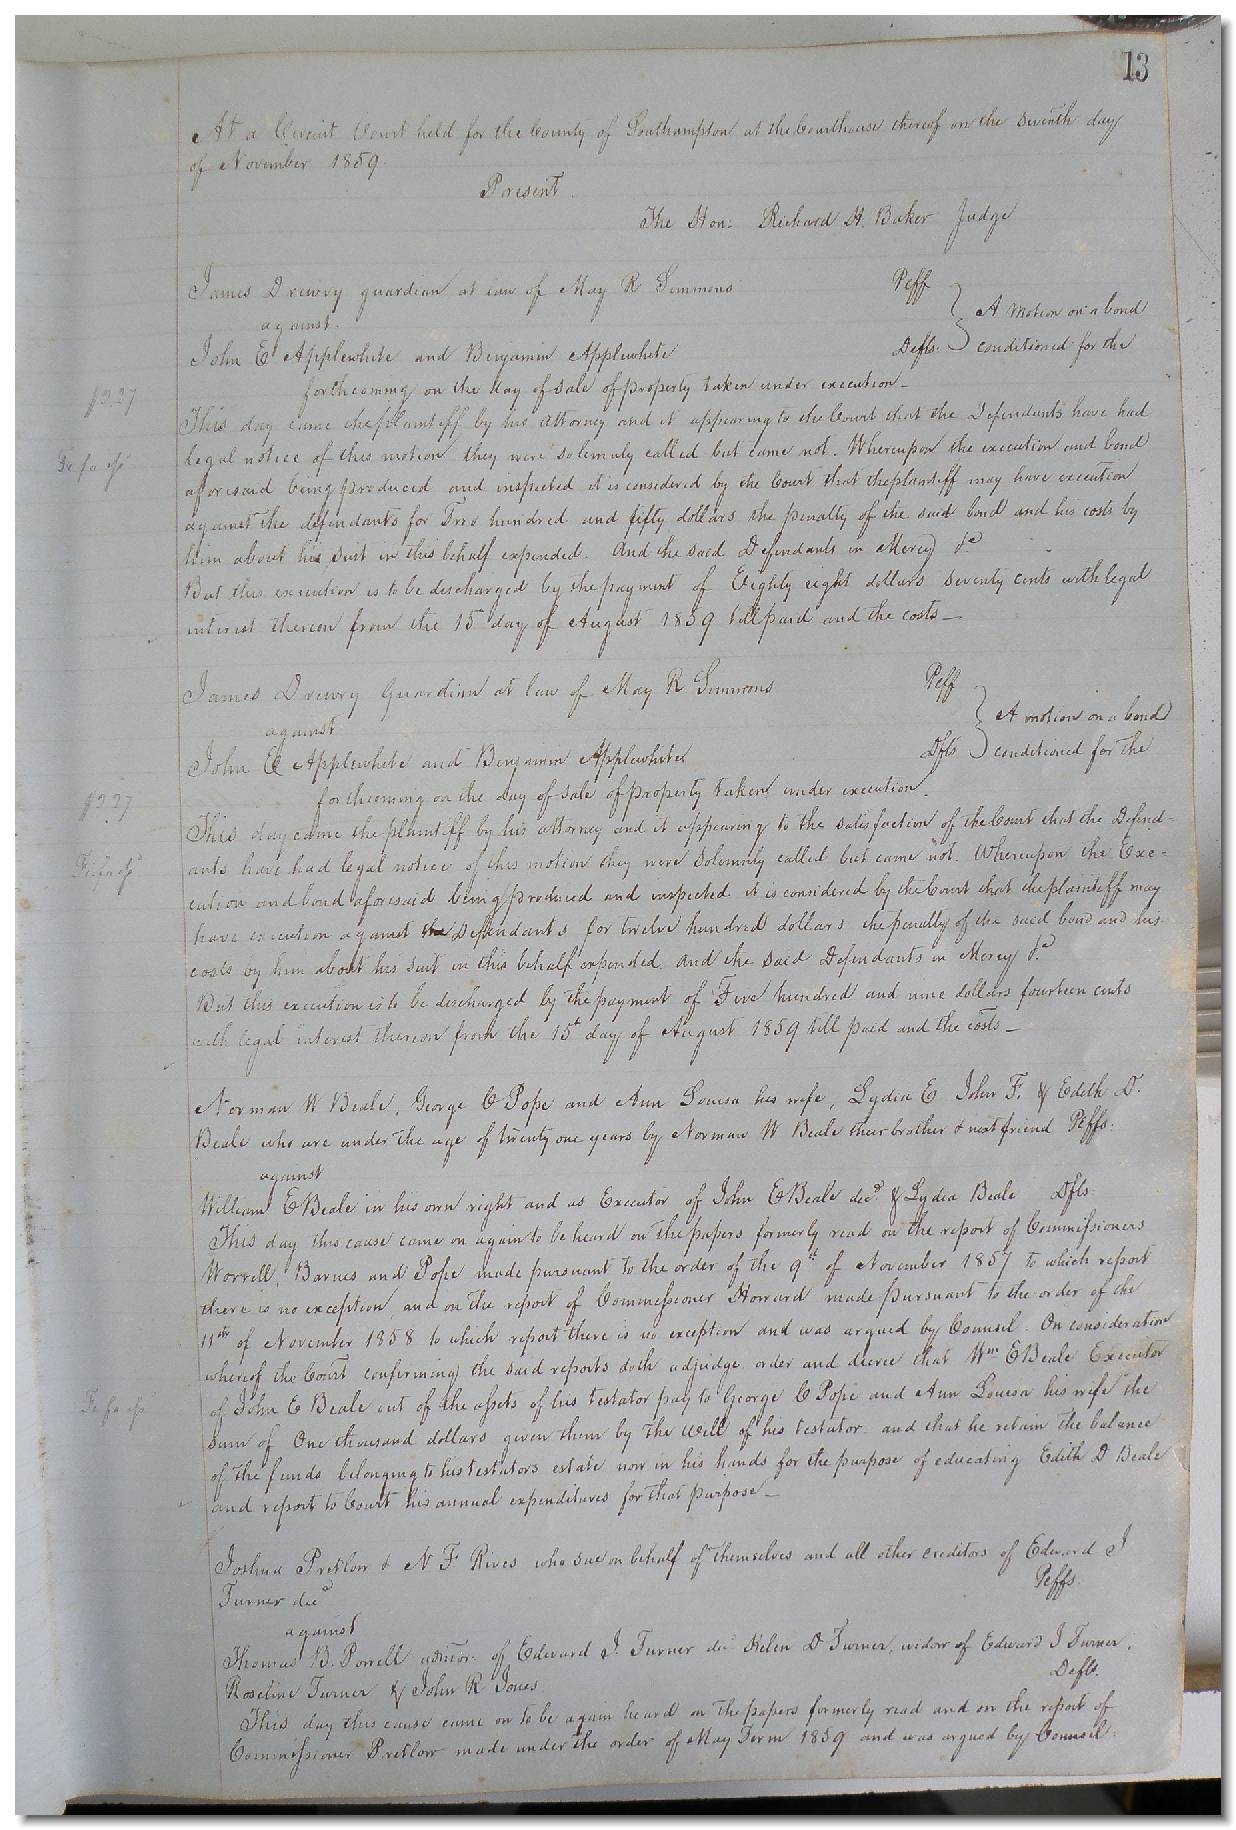 13
At a Circuit Court held for the County of Southampton at the Courthouse thereof on the Seventh day
of November 1859.
Present
The Hon: Richard H. Baker Judge
James Drewry guardian at law of May R Simmons Peff
against.
A Motion on a bond
John E Applewhite and Benjamin Applewhite Defts. conditioned for the
forthcoming on the day of sale of property taken under execution_
This day came the plaintiff by his attorney and it appearing to the Court that the Defendants have had
Fi fa
legal notice of this motion they were solemnly called but came not. Whereupon the execution and bond
aforesaid being produced and inspected it is considered by the Court that the plaintiff may have execution
against the defendants for Two hundred and fifty dollars the penalty of the said bond and his costs by
him about his suit in this behalf expended. And the said Defendants in Mercy &c
But this execution is to be discharged by the payment of Eighty eight dollars seventy cents with legal
interest thereon from the 15 day of August 1859 till paid and the costs_
James Drewry Guardian at law of May R Simmons Peff
against
A motion on a bond
John E Applewhite and Benjamin Applewhite Dfts conditioned for the
forthcoming on the day of sale of property taken under execution.
This day came the plaintiff by his attorney and it appearing to the satisfaction of the Court that the Defend-
Fi fa
ants have had legal notice of this motion they were solemnly called but came not. Whereupon the Exe-
cution and bond aforesaid being produced and inspected it is considered by the Court that the plaintiff may
have execution against the Defendants for twelve hundred dollars the penalty of the said bond and his
costs by him about his suit in this behalf expended. And the said Defendants in Mercy &c
But this execution is to be discharged by the payment of Five hundred and nine dollars fourteen cents
with legal interest thereon from the 15t day of August 1859 till paid and the costs_
Norman W Beale, George C Pope and Ann Louisa his wife, Lydia E John F. & Edith D.
Beale who are under the age of twenty one years by Norman W Beale their brother & next friend Peffs.
against
William E Beale in his own right and as Executor of John E Beale decd. & Lydia Beale Dfts
This day this cause came on again to be heard on the papers formerly read on the report of Commissioners
Worrell, Barnes and Pope made pursuant to the order of the 9th of November 1857 to which report
there is no exception and on the report of Commissioner Howard made pursuant to the order of the
11th of November 1858 to which report there is no exception and was argued by Counsel. On consideration
whereof the Court confirming the said reports doth adjudge order and decree that Wm E Beale Executor
Fi fa
of John E Beale out of the assets of his testator pay to George C Pope and Ann Louisa his wife the
sum of One thousand dollars given them by the will of his testator and that he retain the balance
of the funds belonging to his testators estate now in his hands for the purpose of educating Edith D Beale
and report to Court his annual expenditures for that purpose_
Joshua Pretlow & N F Rives who sue on behalf of themselves and all other creditors of Edward J
Turner decd Peffs.
against
Thomas B. Porrell admor. of Edward J. Turner decd Helen D Turner, widow of Edward J Turner,
Roseline Turner & John R Jones Defts.
This day this cause came on to be again heard on the papers formerly read and on the report of
Commissioner Pretlow made under the order of May Term 1859 and was argued by Counsel.